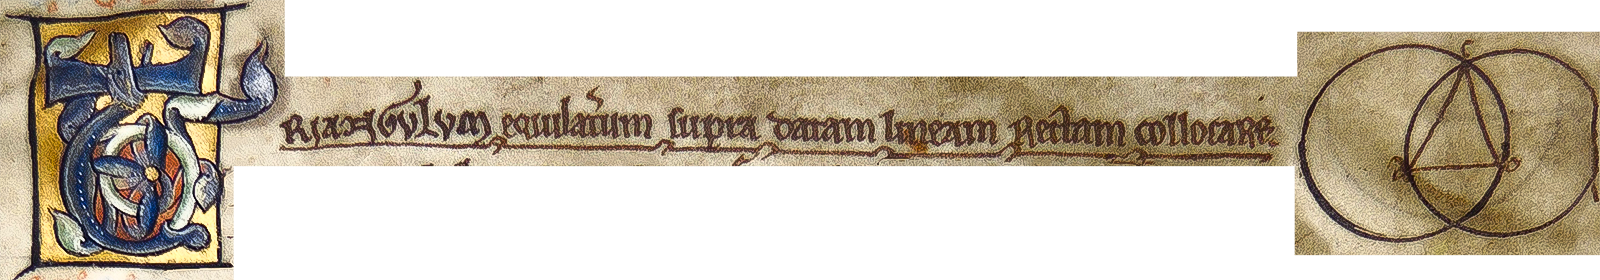 TRIANGULUM equilaterum supra datam lineam Rectam collocare
c
a b